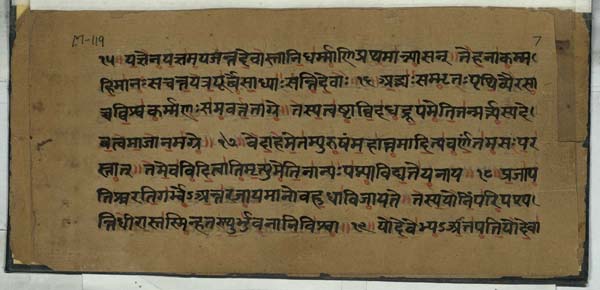 M-119 7
१५ यज्ञेनयज्ञमयजन्तदेवास्तानिधर्म्माणिप्रथमान्यासन् ॥ तेहनाकम्म
हिमानःसचन्तयत्रपूर्वेसाध्याःसन्तिदेवाः १६ अद्भ्यःसम्भृतःपृथिव्यैरसा
च्चविश्वकर्म्मणःसमवर्त्तताग्रे ॥ तस्यत्वष्टाविदधद्रूपमेतितन्मर्त्यस्यदे
वत्वमाजानमग्रे ॥ १७ वेदाहमेतम्पुरुषंम्महान्तमादित्यवर्णन्तमसःपर
स्तात् ॥ तमेवविदित्वातिमृत्युमेतिनान्यःपन्थाविद्यतेयनाय ॥ १८ प्रजाप
तिश्चरतिगर्भेऽअन्तरजायमानोबहुधाविजायते ॥ तस्ययोनिंपरिपश्य
न्तिधीरास्तस्मिन्हतस्थुर्भुवनानिविश्वा ॥ १९ योदेवेभ्यऽआतपतियोदेवा